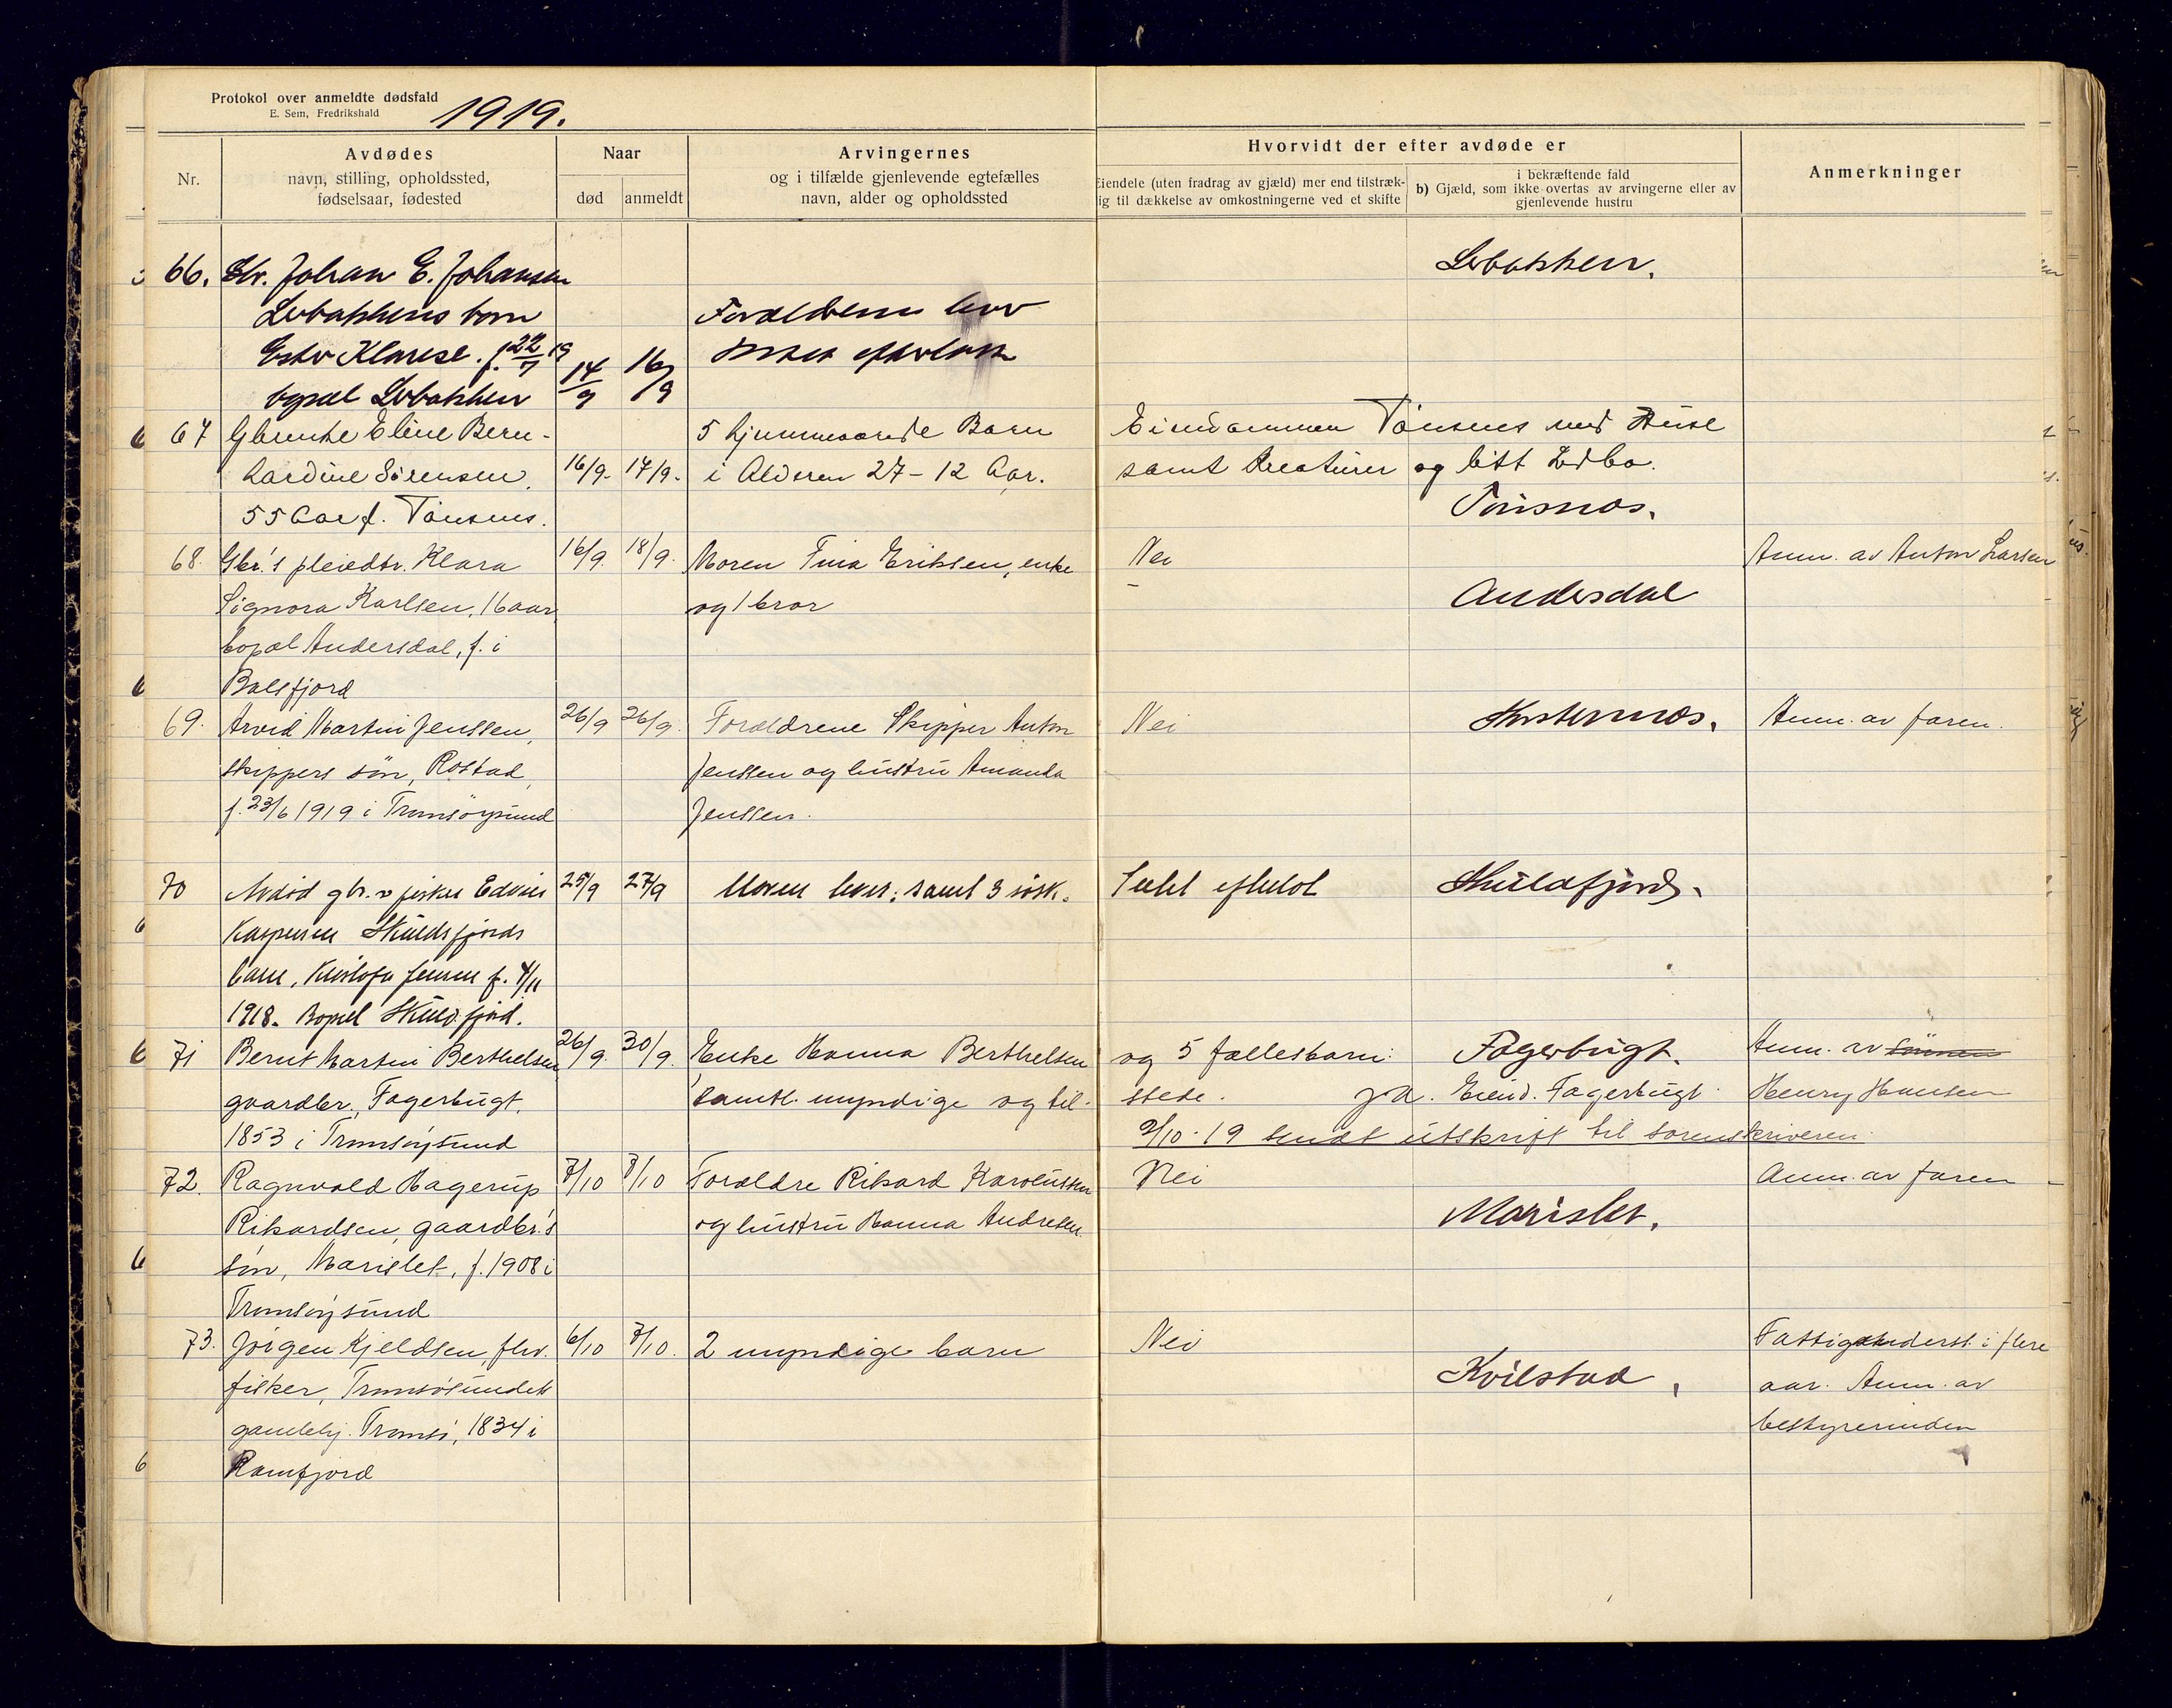 Protokol over anmeldte dødsfald
E. Sem, Fredrikshald
1919.
Nr.
Avdødes
navn, stilling, opholdssted,
fødselsaar, fødested
Naar
død
anmeldt
Arvingernes
og i tilfælde gjenlevende egtefælles
navn, alder og opholdssted
Hvorvidt der efter avdøde er
Eiendele (uten fradrag av gjæld) mer end tilstræk-
ig til dækkelse av omkostningerne ved et skifte
i bekræftende fald
b) Gjæld, som ikke overtas av arvingerne eller av
gjenlevende hustru
Anmerkninger
66. Johan E. Johansen
barn
f. 22/7 19
bopæl
14/9 16/9
Forældrene lever
67 Gbrenke Eline Bern-
hardine Sörensen,
55 Aar f. Tönsnes.
16/9. 17/9.
5 hjemmeværende Barn
i Alderen 27 - 12 Aar.
Eiendommen Tönsnes med Huse
samt Kreaturer og litt Indbo.
Tönsnes.
68. Gbr.'s pleiedtr. Klara
Signora Karlsen, 16 aar,
bopæl Andersdal, f. i
Balsfjord
16/9. 18/9.
Moren Tina Eriksen, enke
og 1 bror
Nei
Andersdal
Anm. av Anton Larsen
69. Arvid Martin Jenssen,
skippers sön, Rostad,
f. 23/6 1919 i Tromsöysund
26/9 26/9.
Forældrene Skipper Anton
Jenssen og hustru Amanda
Jenssen.
Nei
Anm. av faren.
70 Avdöd gbr. & fisker Edvin
Kaspersen Skulsfjords
barn, Kristofa Jensen f. 4/11
1918. Bopæl Skulsfjord.
25/9 27/9
Moren lever; samt 3 søsk.
Intet efterlot
Skulsfjord.
71 Bernt Martin Berthelsen
gaardbr., Fagerbugt,
1853 i Tromsöysund
26/9. 30/9.
Enke Hanna Berthelsen og 5 fællesbarn:
samtl. myndige og til- stede.
Fagerbugt.
ja. Eiend. Fagerbugt.
9/10-19 sendt utskrift til sorenskriveren.
Anm. av sönnen
Henry Hansen
72. Ragnvald Hagerup
Rikardsen, gaardbr.'s
sön, Marislet, f. 1908 i
Tromsöysund
7/10 8/10
Forældre Rikard Karolussen
og hustru Hanna Andresen.
Nei
Marislet.
Anm. av faren
73. Jörgen Kjeldsen, fhv.
fisker, Tromsösundets
gamlehj. Tromsö, 1834 i
Ramfjord
6/10 7/10.
2 myndige barn
Nei
Kvilstad
Fattigunderst. i flere
aar. Anm. av
bestyrerinden